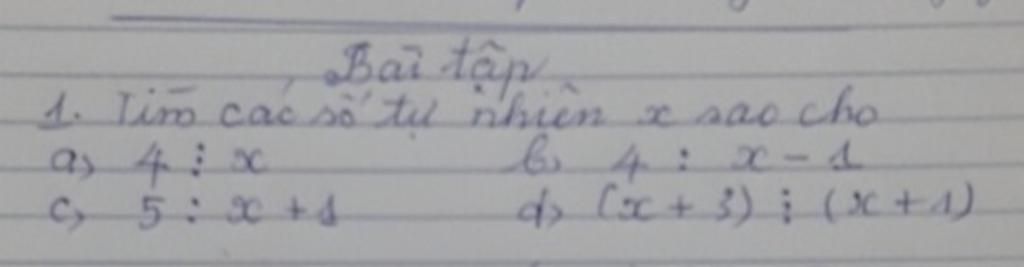 Bài tập
1. Tìm các số tự nhiên x sao cho
a, 4 ⋮ x b, 4 ⋮ x - 1
c, 5 ⋮ x + 1 d, (x + 3) ⋮ (x + 1)